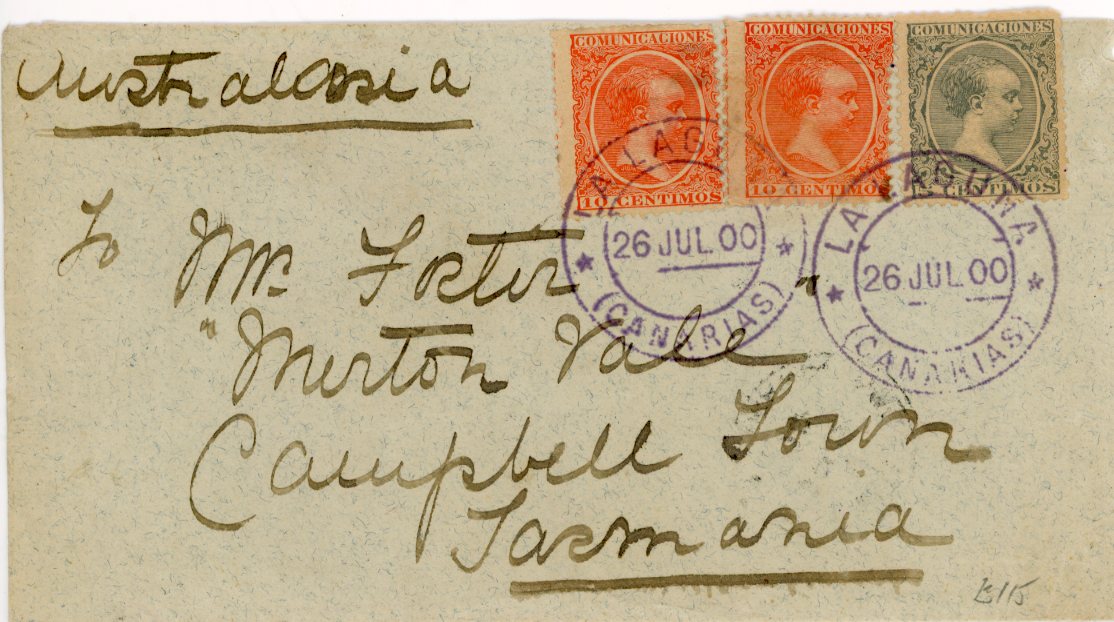 Australasia
COMUNICACIONES
10 CENTIMOS
COMUNICACIONES
10 CENTIMOS
COMUNICACIONES
CENTIMOS
LA LAG
26 JUL.00
(CANARIAS)
LA LAGUNA
26 JUL 00
(CANARIAS)
To Mrs. Foster
"Merton Vale"
Campbell Town
Tasmania